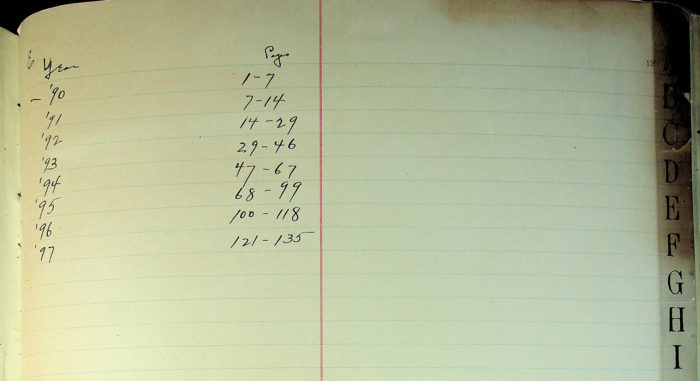 Year Pages
- '90 1-7
'91 7-14
'92 14-29
'93 29-46
'94 47-67
'95 68-99
'96 100-118
'97 121-135
A
B
C
D
E
F
G
H
I